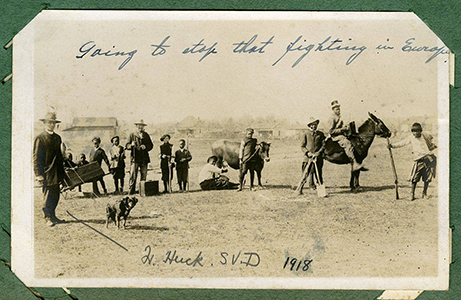 Going to stop that fighting in Europe
H. Huck. S.V.D 1918